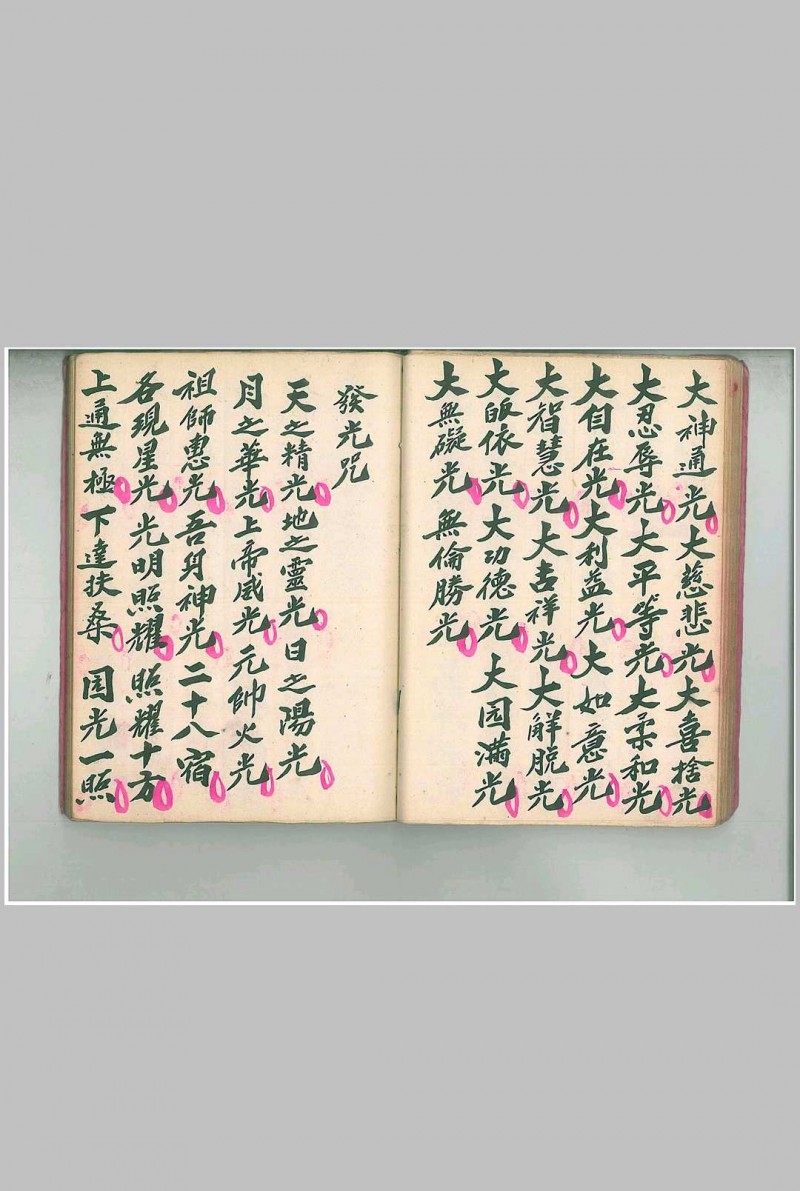 大神通光大慈悲光大喜捨光
大忍辱光大平等光大柔和光
大自在光大利益光大如意光
大智慧光大吉祥光大解脱光
大皈依光大功德光大园满光
大無礙光無倫勝光
發光咒
天之精光地之靈光日之陽光
月之華光上帝威光元帥火光
祖師惠光吾身神光二十八宿
各現星光光明照耀照耀十方
上通無極下達扶桑圎光一照